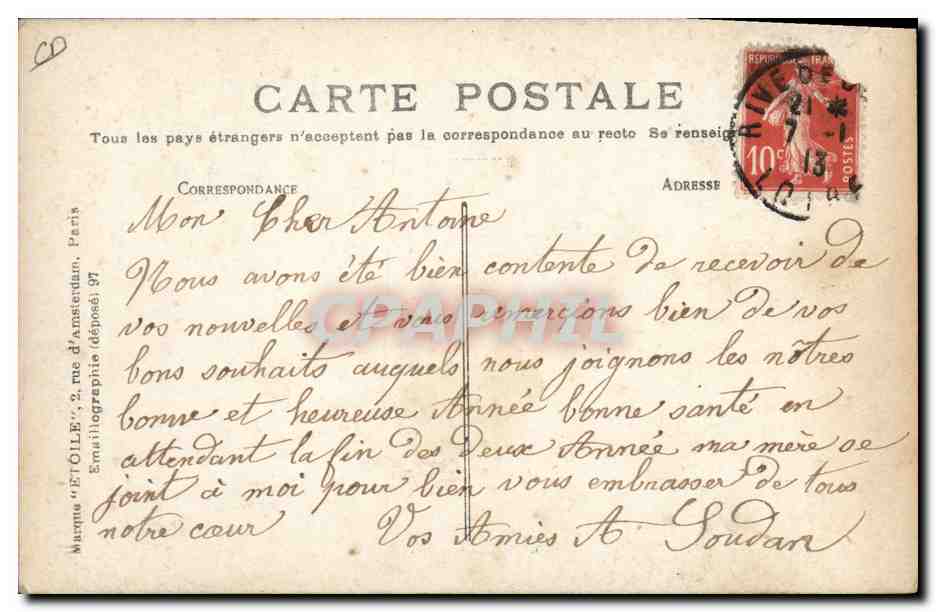 CD
CARTE POSTALE
Tous les pays étrangers n'acceptent pas la correspondance au recto Se renseig
CORRESPONDANCE
ADRESSE
REPUBLIQUE FRAN
10c
POSTES
RIVE DE
21 *
7 -1
13
LOIRE
Marque "ETOILE", 2, rue d'Amsterdam, Paris
Emaillographie (déposé) 97
Mon Cher Antoine
Nous avons été bien contente de recevoir de
vos nouvelles et vous remerçions bien de vos
bons souhaits auquels nous joignons les nôtres
bonne et heureuse Année bonne santé en
attendant la fin des deux Année ma mère se
joint à moi pour bien vous embrasser de tous
notre cœur Vos Amies A Soudan
CPAPHIL